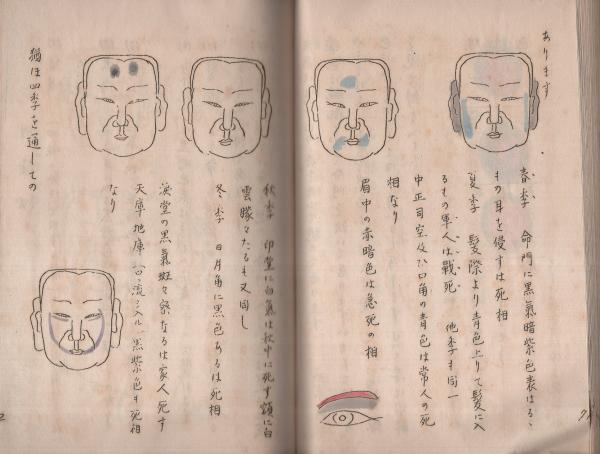 あります
春季 命門に黒氣暗紫色表はるゝ
もの耳を侵すは死相
夏季 髪際より青色上りて髪に入
るもの軍人は戰死 他季も同一
中正司空及び口角の青色は常人の死
相なり
眉中の赤暗色は急死の相
秋季 印堂に白氣は秋中に死す額に白
雲朦々たるも又同し
冬季 日月角に黒色あるは死相
堂の黒氣斑々祭なるは家人死す
天庫地庫 口流シ入ル 黒紫色も死相
なり
猶ほ四季を通しての